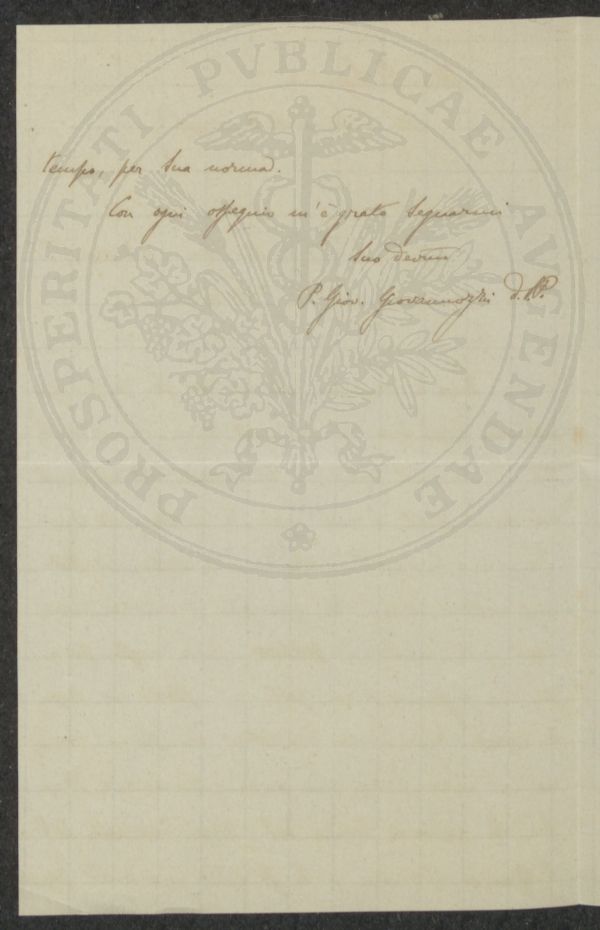 tempo, per Sua norma.
Con ogni ossequio m'è grato segnarmi
Suo devmo
P. Giov. Giovannozzi d. S. P.
PROSPERITATI PVBLICAE AVGENDAE